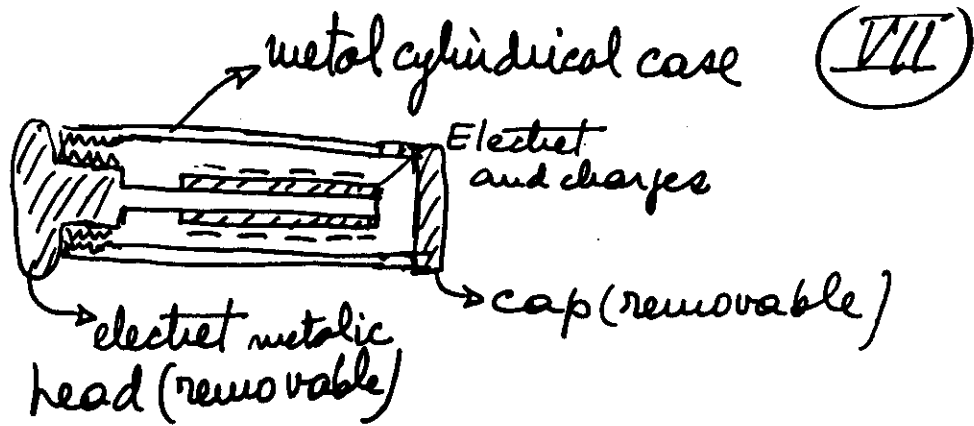 metal cylindrical case
VII
Electret
and charges
cap (removable)
electret metalic
head (removable)